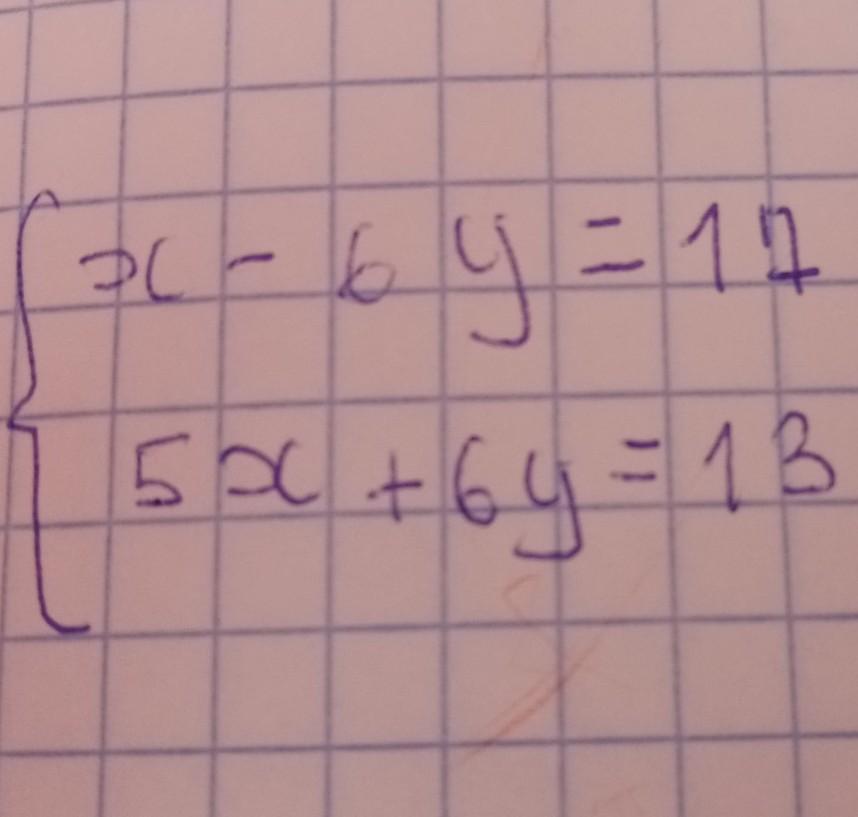 x - 6y = 17
5x + 6y = 13